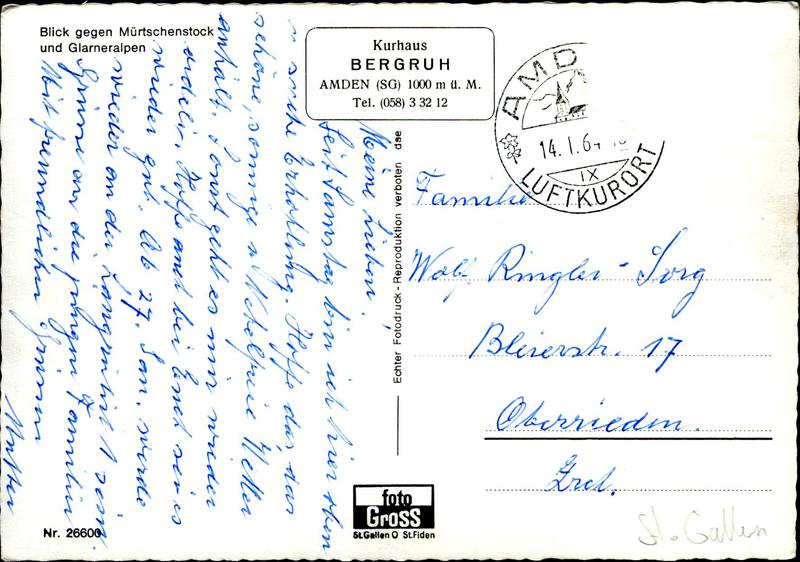 Blick gegen Mürtschenstock
und Glarneralpen
Kurhaus
BERGRUH
AMDEN (SG) 1000 m ü. M.
Tel. (058) 3 32 12
AMD
14. I. 64
IX
LUFTKURORT
Meine Lieben!
Seit Samstag bin ich hier oben
u suche Erholung. Hoffe das das
schöne, sonnige u Nebelfreie Wetter
anhält. Sonst geht es mir wieder
ordeli. Hoffe auch bei Euch sei es
wieder gut. Ab 27. Jan. werde
wieder an der 11 sein.
Grüsse an die jungen Familien
Mit freundlichen Grüssen
Mutter
Echter Fotodruck - Reproduktion verboten dse
Familie
Wolf Ringler-Sorg
Bleierstr. 17
Oberrieden.
Zrch.
foto
Gross
St.Gallen O St.Fiden
Nr. 26600
St. Gallen